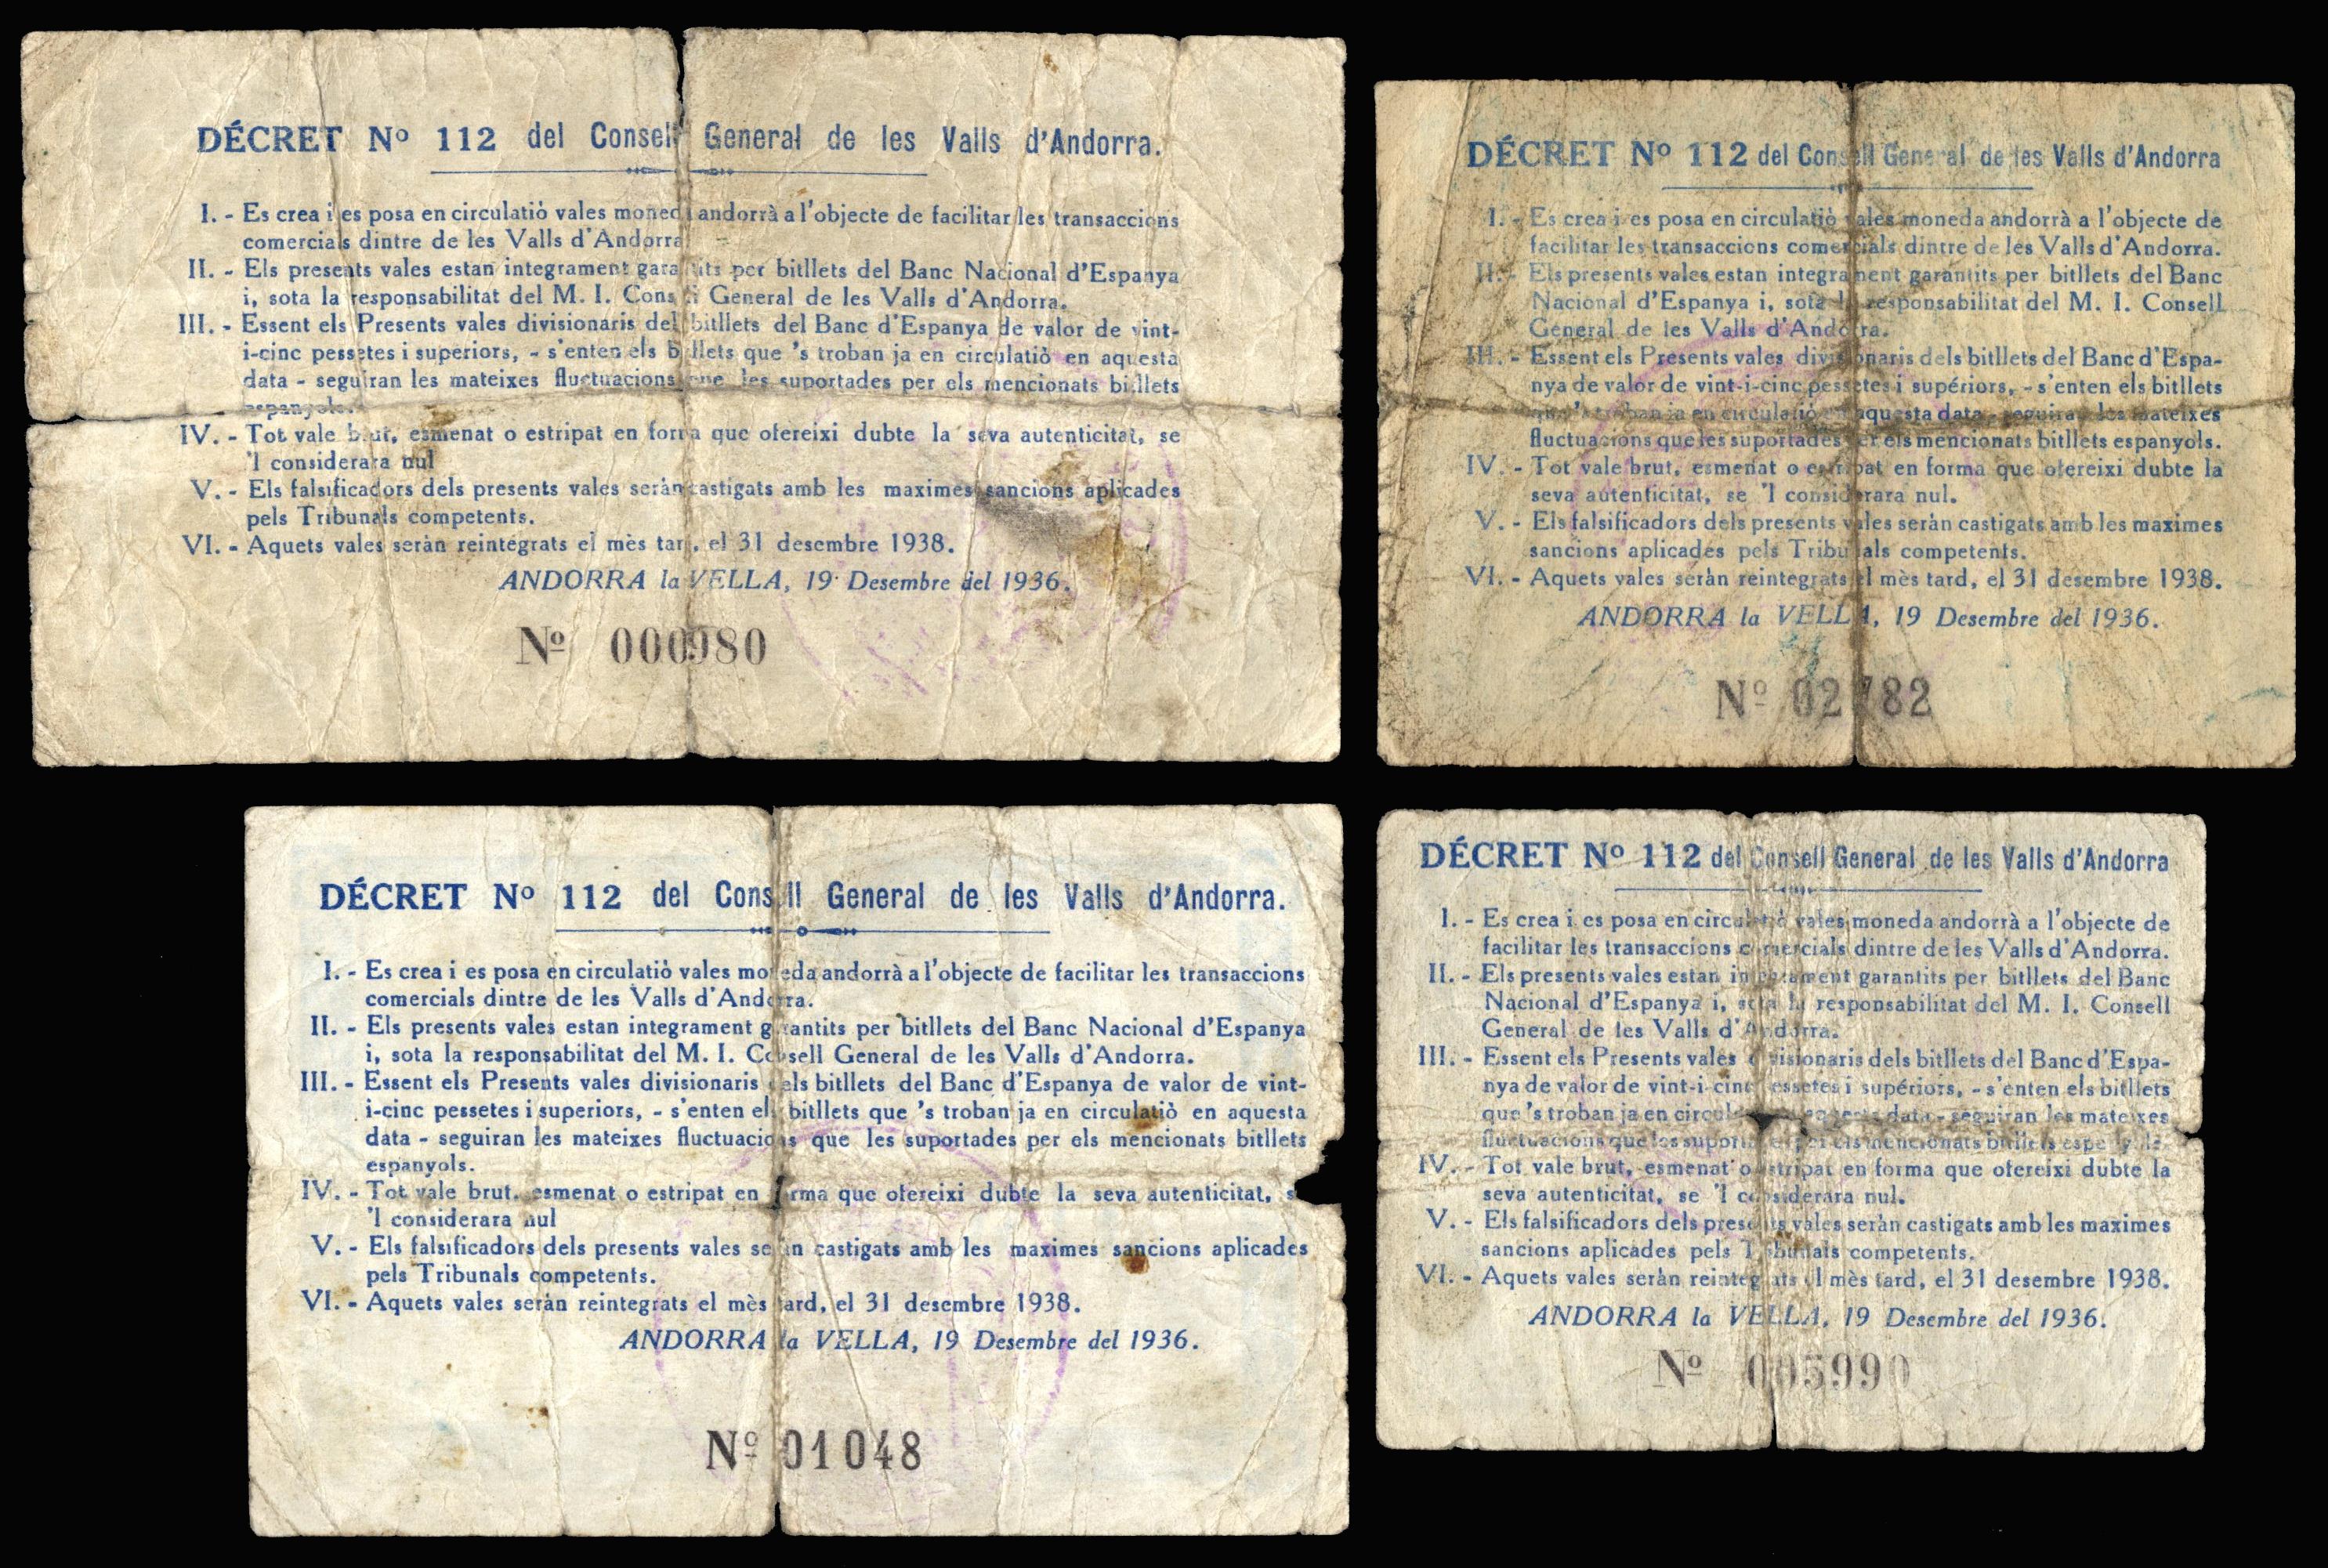 DÉCRET Nº 112 del Consell General de les Valls d'Andorra.
I. - Es crea i es posa en circulatiò vales moned andorrà a l'objecte de facilitar les transaccions
comercials dintre de les Valls d'Andorra
II. - Els presents vales estan integrament garantits per bitllets del Banc Nacional d'Espanya
i, sota la responsabilitat del M. I. Cons General de les Valls d'Andorra.
III. - Essent els Presents vales divisionaris del bitllets del Banc d'Espanya de valor de vint-
i-cinc pessetes i superiors, - s'enten els bitllets que 's troban ja en circulatiò en aquesta
data - seguiran les mateixes fluctuacions que les suportades per els mencionats bitllets
espanyols.
IV. - Tot vale brut, esmenat o estripat en forma que ofereixi dubte la seva autenticitat, se
'l considerara nul
V. - Els falsificadors dels presents vales seràn castigats amb les maximes sancions aplicades
pels Tribunals competents.
VI. - Aquets vales seràn reintegrats el mès tar, el 31 desembre 1938.
ANDORRA la VELLA, 19 Desembre del 1936.
Nº 000980
DÉCRET Nº 112 del Consell General de les Valls d'Andorra
I. - Es crea i es posa en circulatiò vales moneda andorrà a l'objecte de
facilitar les transaccions comercials dintre de les Valls d'Andorra.
II. - Els presents vales estan integrament garantits per bitllets del Banc
Nacional d'Espanya i, sota la responsabilitat del M. I. Consell
General de les Valls d'Andorra.
III. - Essent els Presents vales divisionaris dels bitllets del Banc d'Espa-
nya de valor de vint-i-cinc pessetes i supériors, - s'enten els bitllets
que 's troban ja en circulatiò en aquesta data - seguiran les mateixes
fluctuacions que les suportades per els mencionats bitllets espanyols.
IV. - Tot vale brut, esmenat o estripat en forma que ofereixi dubte la
seva autenticitat, se 'l considerara nul.
V. - Els falsificadors dels presents vales seràn castigats amb les maximes
sancions aplicades pels Tribunals competents.
VI. - Aquets vales seràn reintegrats el mès tard, el 31 desembre 1938.
ANDORRA la VELLA, 19 Desembre del 1936.
Nº 02782
DÉCRET Nº 112 del Consell General de les Valls d'Andorra.
I. - Es crea i es posa en circulatiò vales moneda andorrà a l'objecte de facilitar les transaccions
comercials dintre de les Valls d'Andorra.
II. - Els presents vales estan integrament garantits per bitllets del Banc Nacional d'Espanya
i, sota la responsabilitat del M. I. Consell General de les Valls d'Andorra.
III. - Essent els Presents vales divisionaris dels bitllets del Banc d'Espanya de valor de vint-
i-cinc pessetes i superiors, - s'enten els bitllets que 's troban ja en circulatiò en aquesta
data - seguiran les mateixes fluctuacions que les suportades per els mencionats bitllets
espanyols.
IV. - Tot vale brut, esmenat o estripat en forma que ofereixi dubte la seva autenticitat, s
'l considerara nul
V. - Els falsificadors dels presents vales seràn castigats amb les maximes sancions aplicades
pels Tribunals competents.
VI. - Aquets vales seràn reintegrats el mès tard, el 31 desembre 1938.
ANDORRA la VELLA, 19 Desembre del 1936.
Nº 01048
DÉCRET Nº 112 del Consell General de les Valls d'Andorra
I. - Es crea i es posa en circulatiò vales moneda andorrà a l'objecte de
facilitar les transaccions comercials dintre de les Valls d'Andorra.
II. - Els presents vales estan integrament garantits per bitllets del Banc
Nacional d'Espanya i, sota la responsabilitat del M. I. Consell
General de les Valls d'Andorra.
III. - Essent els Presents vales divisionaris dels bitllets del Banc d'Espa-
nya de valor de vint-i-cinc pessetes i supériors, - s'enten els bitllets
que 's troban ja en circulatiò en aquesta data - seguiran les mateixes
fluctuacions que les suportades per els mencionats bitllets espanyols.
IV. - Tot vale brut, esmenat o estripat en forma que ofereixi dubte la
seva autenticitat, se 'l considerara nul.
V. - Els falsificadors dels presents vales seràn castigats amb les maximes
sancions aplicades pels Tribunals competents.
VI. - Aquets vales seràn reintegrats el mès tard, el 31 desembre 1938.
ANDORRA la VELLA, 19 Desembre del 1936.
Nº 005990